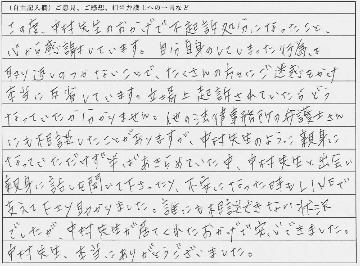 (自由記入欄)ご意見、ご感想、担当弁護士への一言など
この度、中村先生のおかげで不起訴処分になったこと、
心から感謝しています。自分自身のしてしまった行為は
取り返しのつかないことで、たくさんの方にご迷惑をかけ
本当に反省しています。立場上起訴されていたらどう
なっていたか分かりません。他の法律事務所の弁護士さん
にも相談したことがありますが、中村先生のように親身に
なっていただけず半ばあきらめていた中、中村先生と出会い
親身に話を聞いて下さったり、不安になった時もLINEで
支えて下さり助かりました。誰にも相談できない状況
でしたが、中村先生が居てくれたおかげで安心できました。
中村先生、本当にありがとうございました。